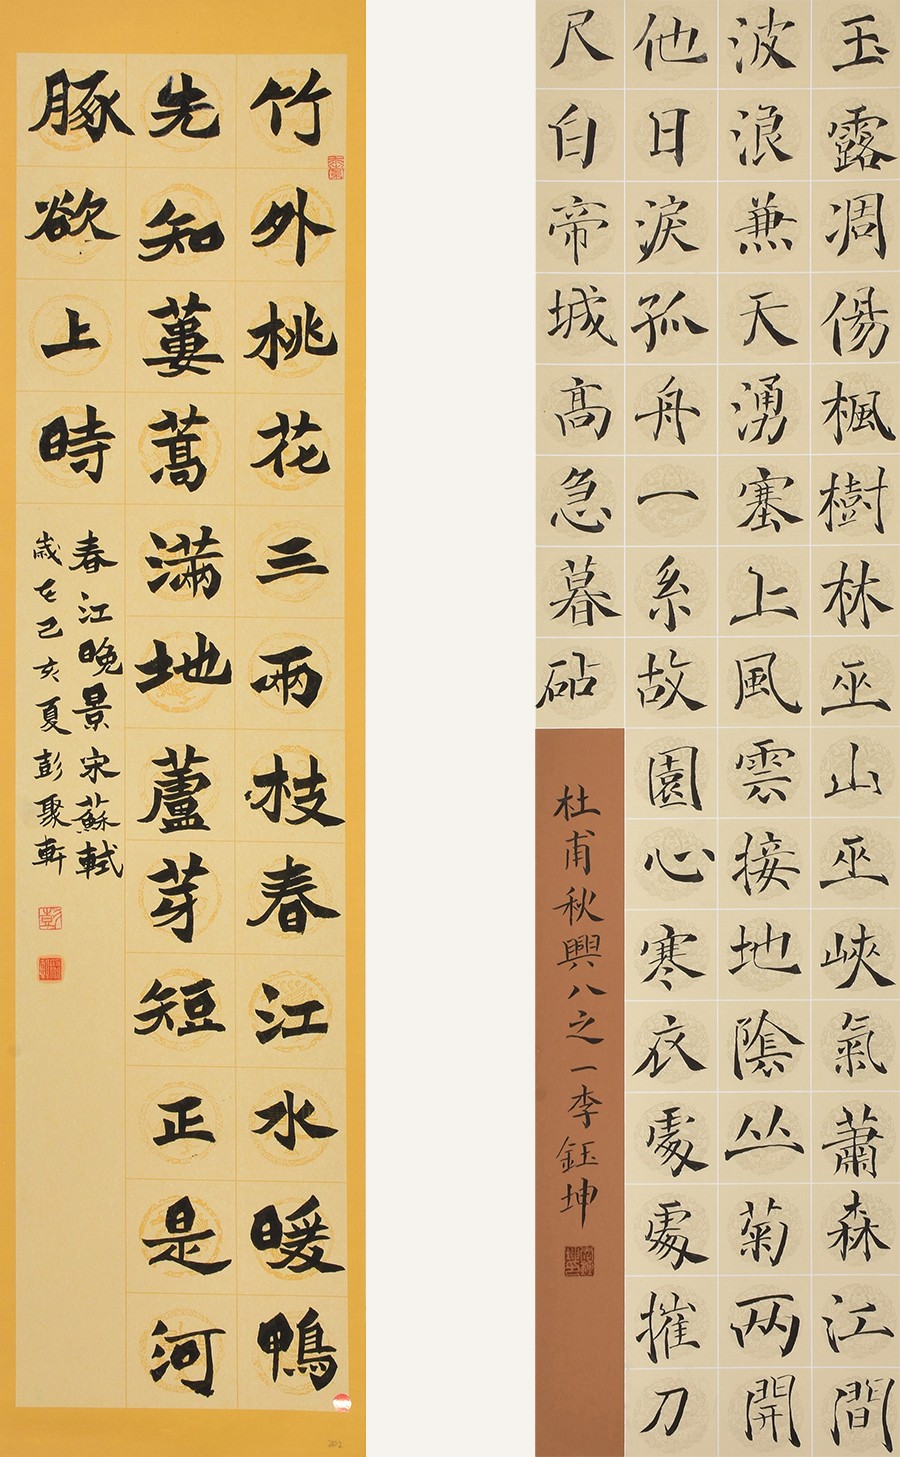 玉露凋傷楓樹林巫山巫峽氣蕭森江間
波浪兼天湧塞上風雲接地陰丛菊两開
他日淚孤舟一系故園心寒衣處處摧刀
尺白帝城高急暮砧
杜甫秋興八之一李鈺坤
竹外桃花三兩枝春江水暖鴨
先知蔞蒿滿地蘆芽短正是河
豚欲上時
春江晚景宋蘇軾
歲在己亥夏彭聚軒